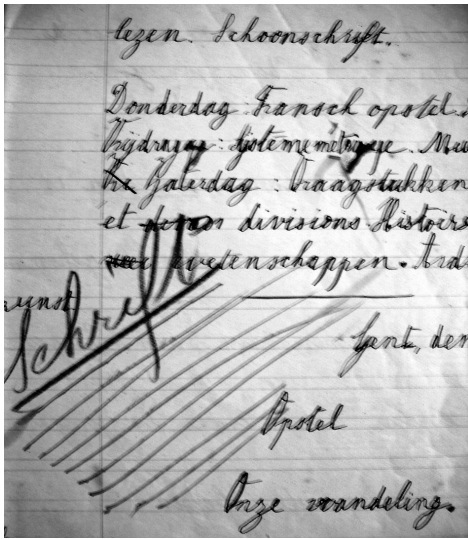 lezen. Schoonschrift.
Donderdag: Fransch opstel.
Vrijdag: système métrique. Mu
Zaterdag: Vraagstukken
et divisions. Histoire
wetenschappen. Ard
kunst
Schrift
Gent, den
Opstel
Onze wandeling.